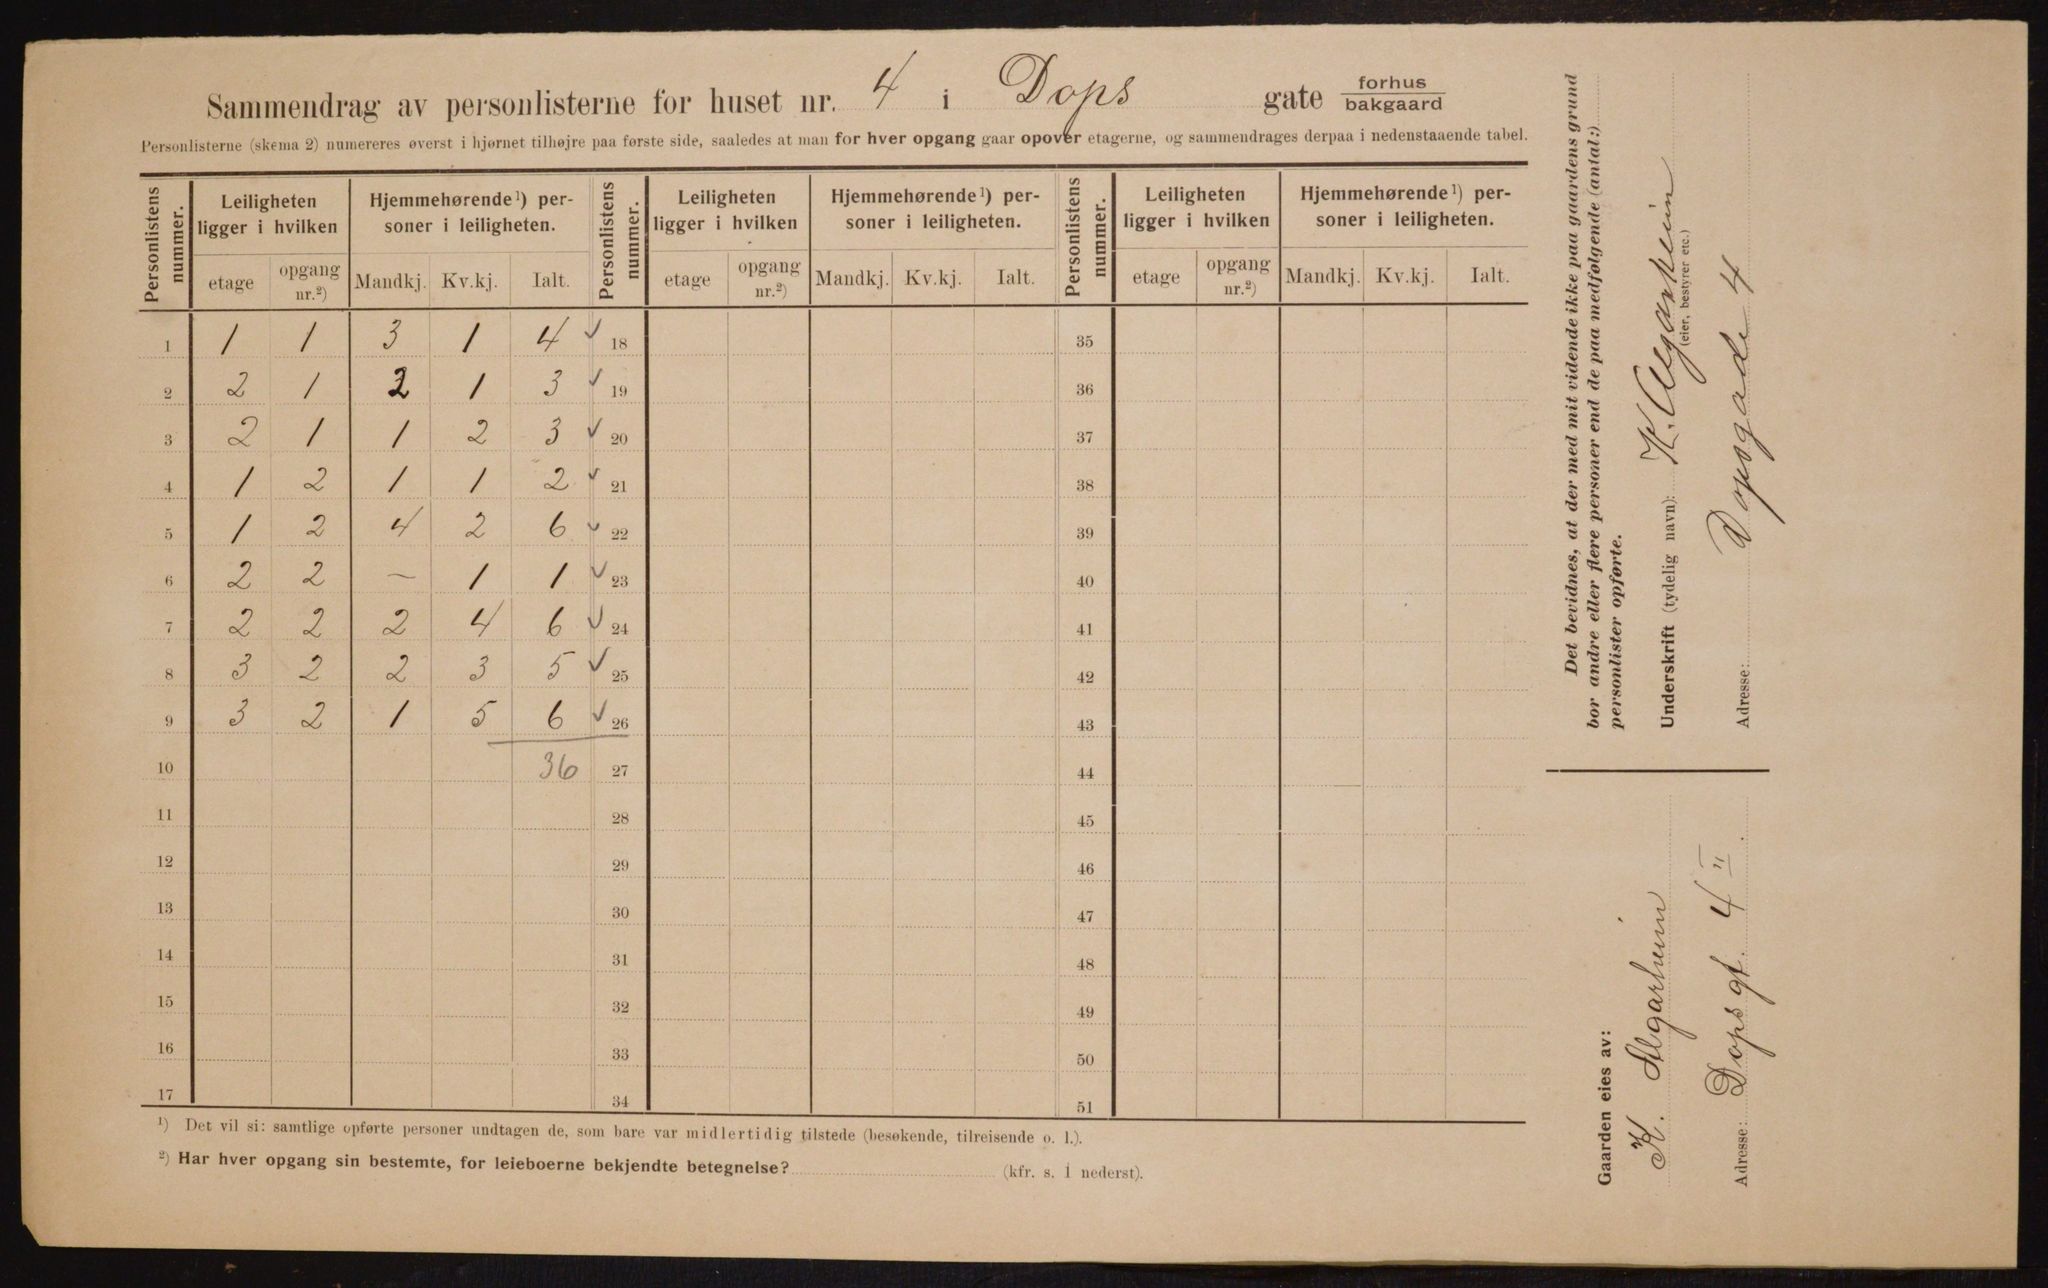 Sammendrag av personlisterne for huset nr. 4 i Dops gate forhus
bakgaard
Personlisterne (skema 2) numereres øverst i hjørnet tilhøjre paa første side, saaledes at man for hver opgang gaar opover etagerne, og sammendrages derpaa i nedenstaaende tabel.
Personlistens nummer. Leiligheten ligger i hvilken Hjemmehørende 1) personer i leiligheten. Personlistens nummer. Leiligheten ligger i hvilken Hjemmehørende 1) personer i leiligheten. Personlistens nummer. Leiligheten ligger i hvilken Hjemmehørende 1) personer i leiligheten.
etage opgang nr.2) Mandkj. Kv.kj. Ialt. etage opgang nr.2) Mandkj. Kv.kj. Ialt. etage opgang nr.2) Mandkj. Kv.kj. Ialt.
1 1 1 3 1 4 ✓ 18 35
2 2 1 2 1 3 ✓ 19 36
3 2 1 1 2 3 ✓ 20 37
4 1 2 1 1 2 ✓ 21 38
5 1 2 4 2 6 ✓ 22 39
6 2 2 – 1 1 ✓ 23 40
7 2 2 2 4 6 ✓ 24 41
8 3 2 2 3 5 ✓ 25 42
9 3 2 1 5 6 ✓ 26 43
10 36 27 44
11 28 45
12 29 46
13 30 47
14 31 48
15 32 49
16 33 50
17 34 51
1) Det vil si: samtlige opførte personer undtagen de, som bare var midlertidig tilstede (besøkende, tilreisende o. l.).
2) Har hver opgang sin bestemte, for leieboerne bekjendte betegnelse? (kfr. s. 1 nederst).
Det bevidnes, at der med mit vidende ikke paa gaardens grund
bor andre eller flere personer end de paa medfølgende (antal:)
personlister opførte.
Underskrift (tydelig navn): K. Algarheim
(eier, bestyrer etc.)
Adresse: Dopsgade 4
Gaarden eies av:
K. Algarheim
Adresse: Dops gt. 4 II.